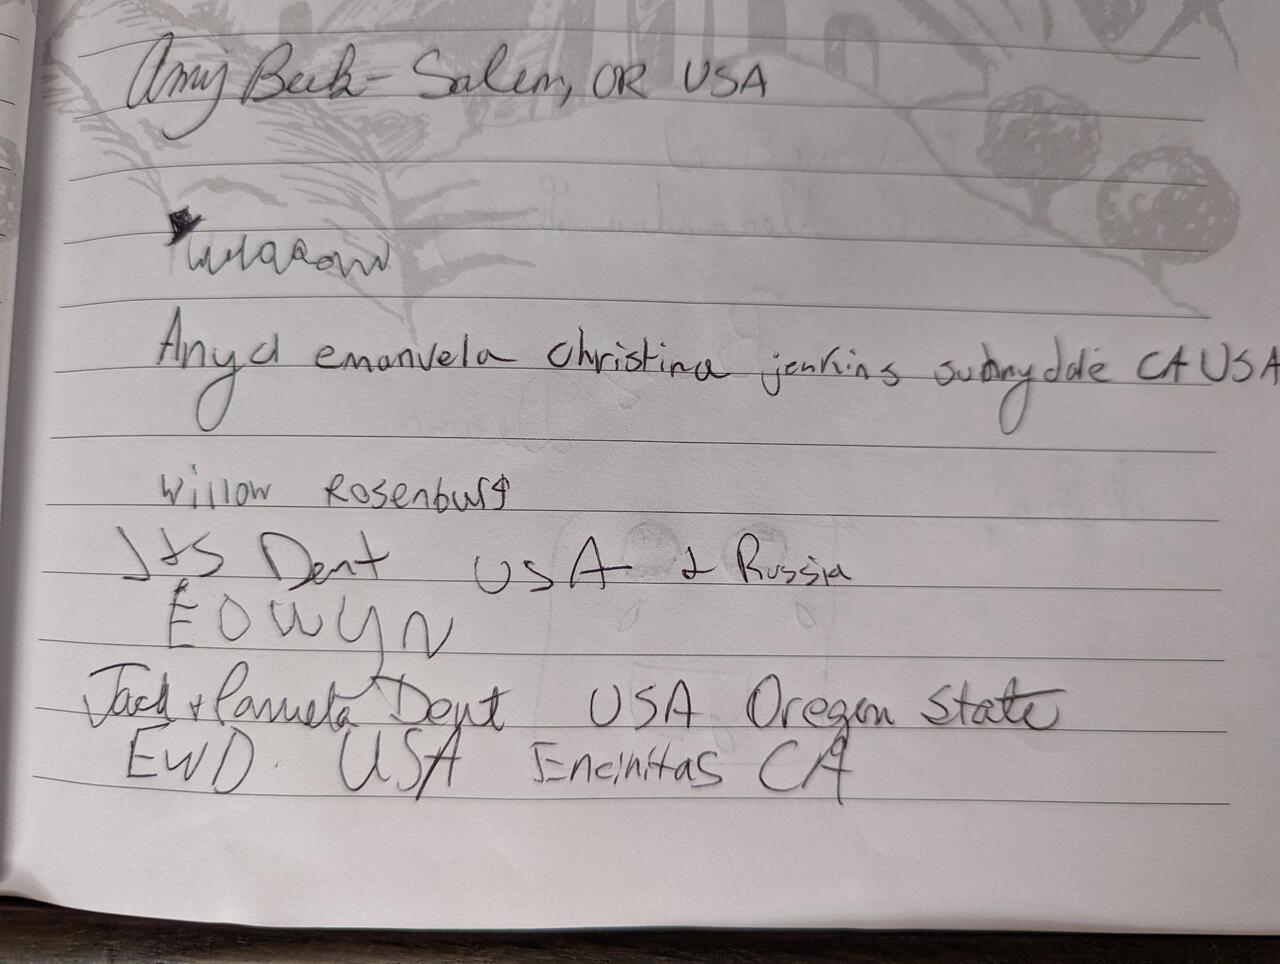 Amy Beck - Salem, OR USA
Anya emanuela christina jenkins sunnydale CA USA
Willow Rosenburg
Dent USA & Russia
EOWYN
Jack + Pamela Dent USA Oregon State
EWD. USA Encinitas CA